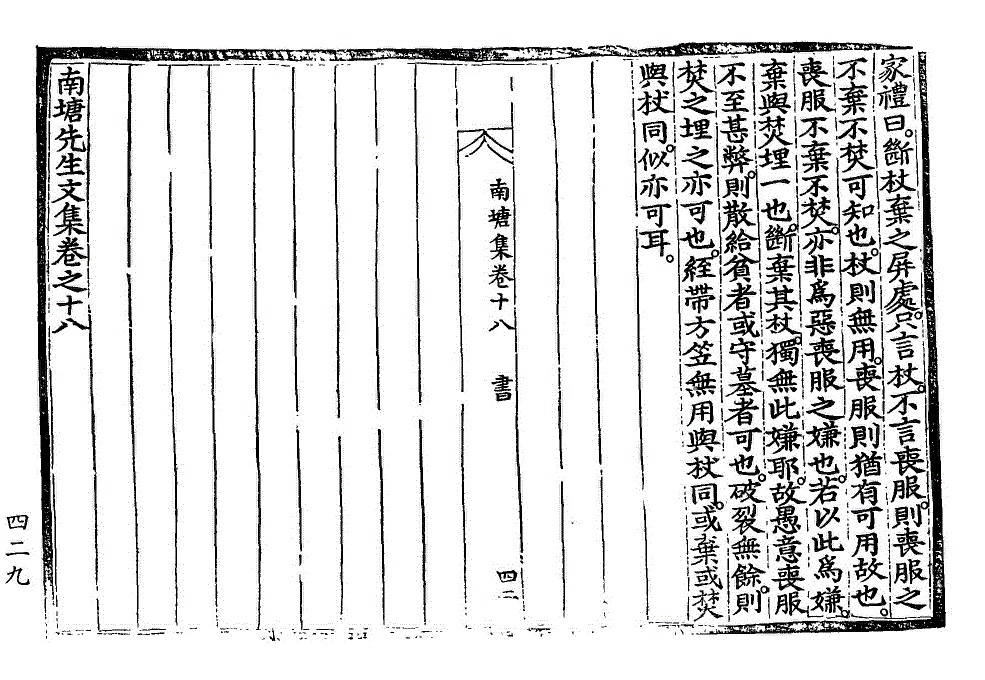 家禮曰。斷杖棄之屛處。只言杖。不言喪服。則喪服之
不棄不焚可知也。杖則無用。喪服則猶有可用故也。
喪服不棄不焚。亦非爲惡喪服之嫌也。若以此爲嫌。
棄與焚埋一也。斷棄其杖。獨無此嫌耶。故愚意喪服
不至甚弊。則散給貧者或守墓者可也。破裂無餘。則
焚之埋之亦可也。絰帶方笠無用與杖同。或棄或焚
與杖同。似亦可耳。
南塘集卷十八 書 四二
南塘先生文集卷之十八
四二九